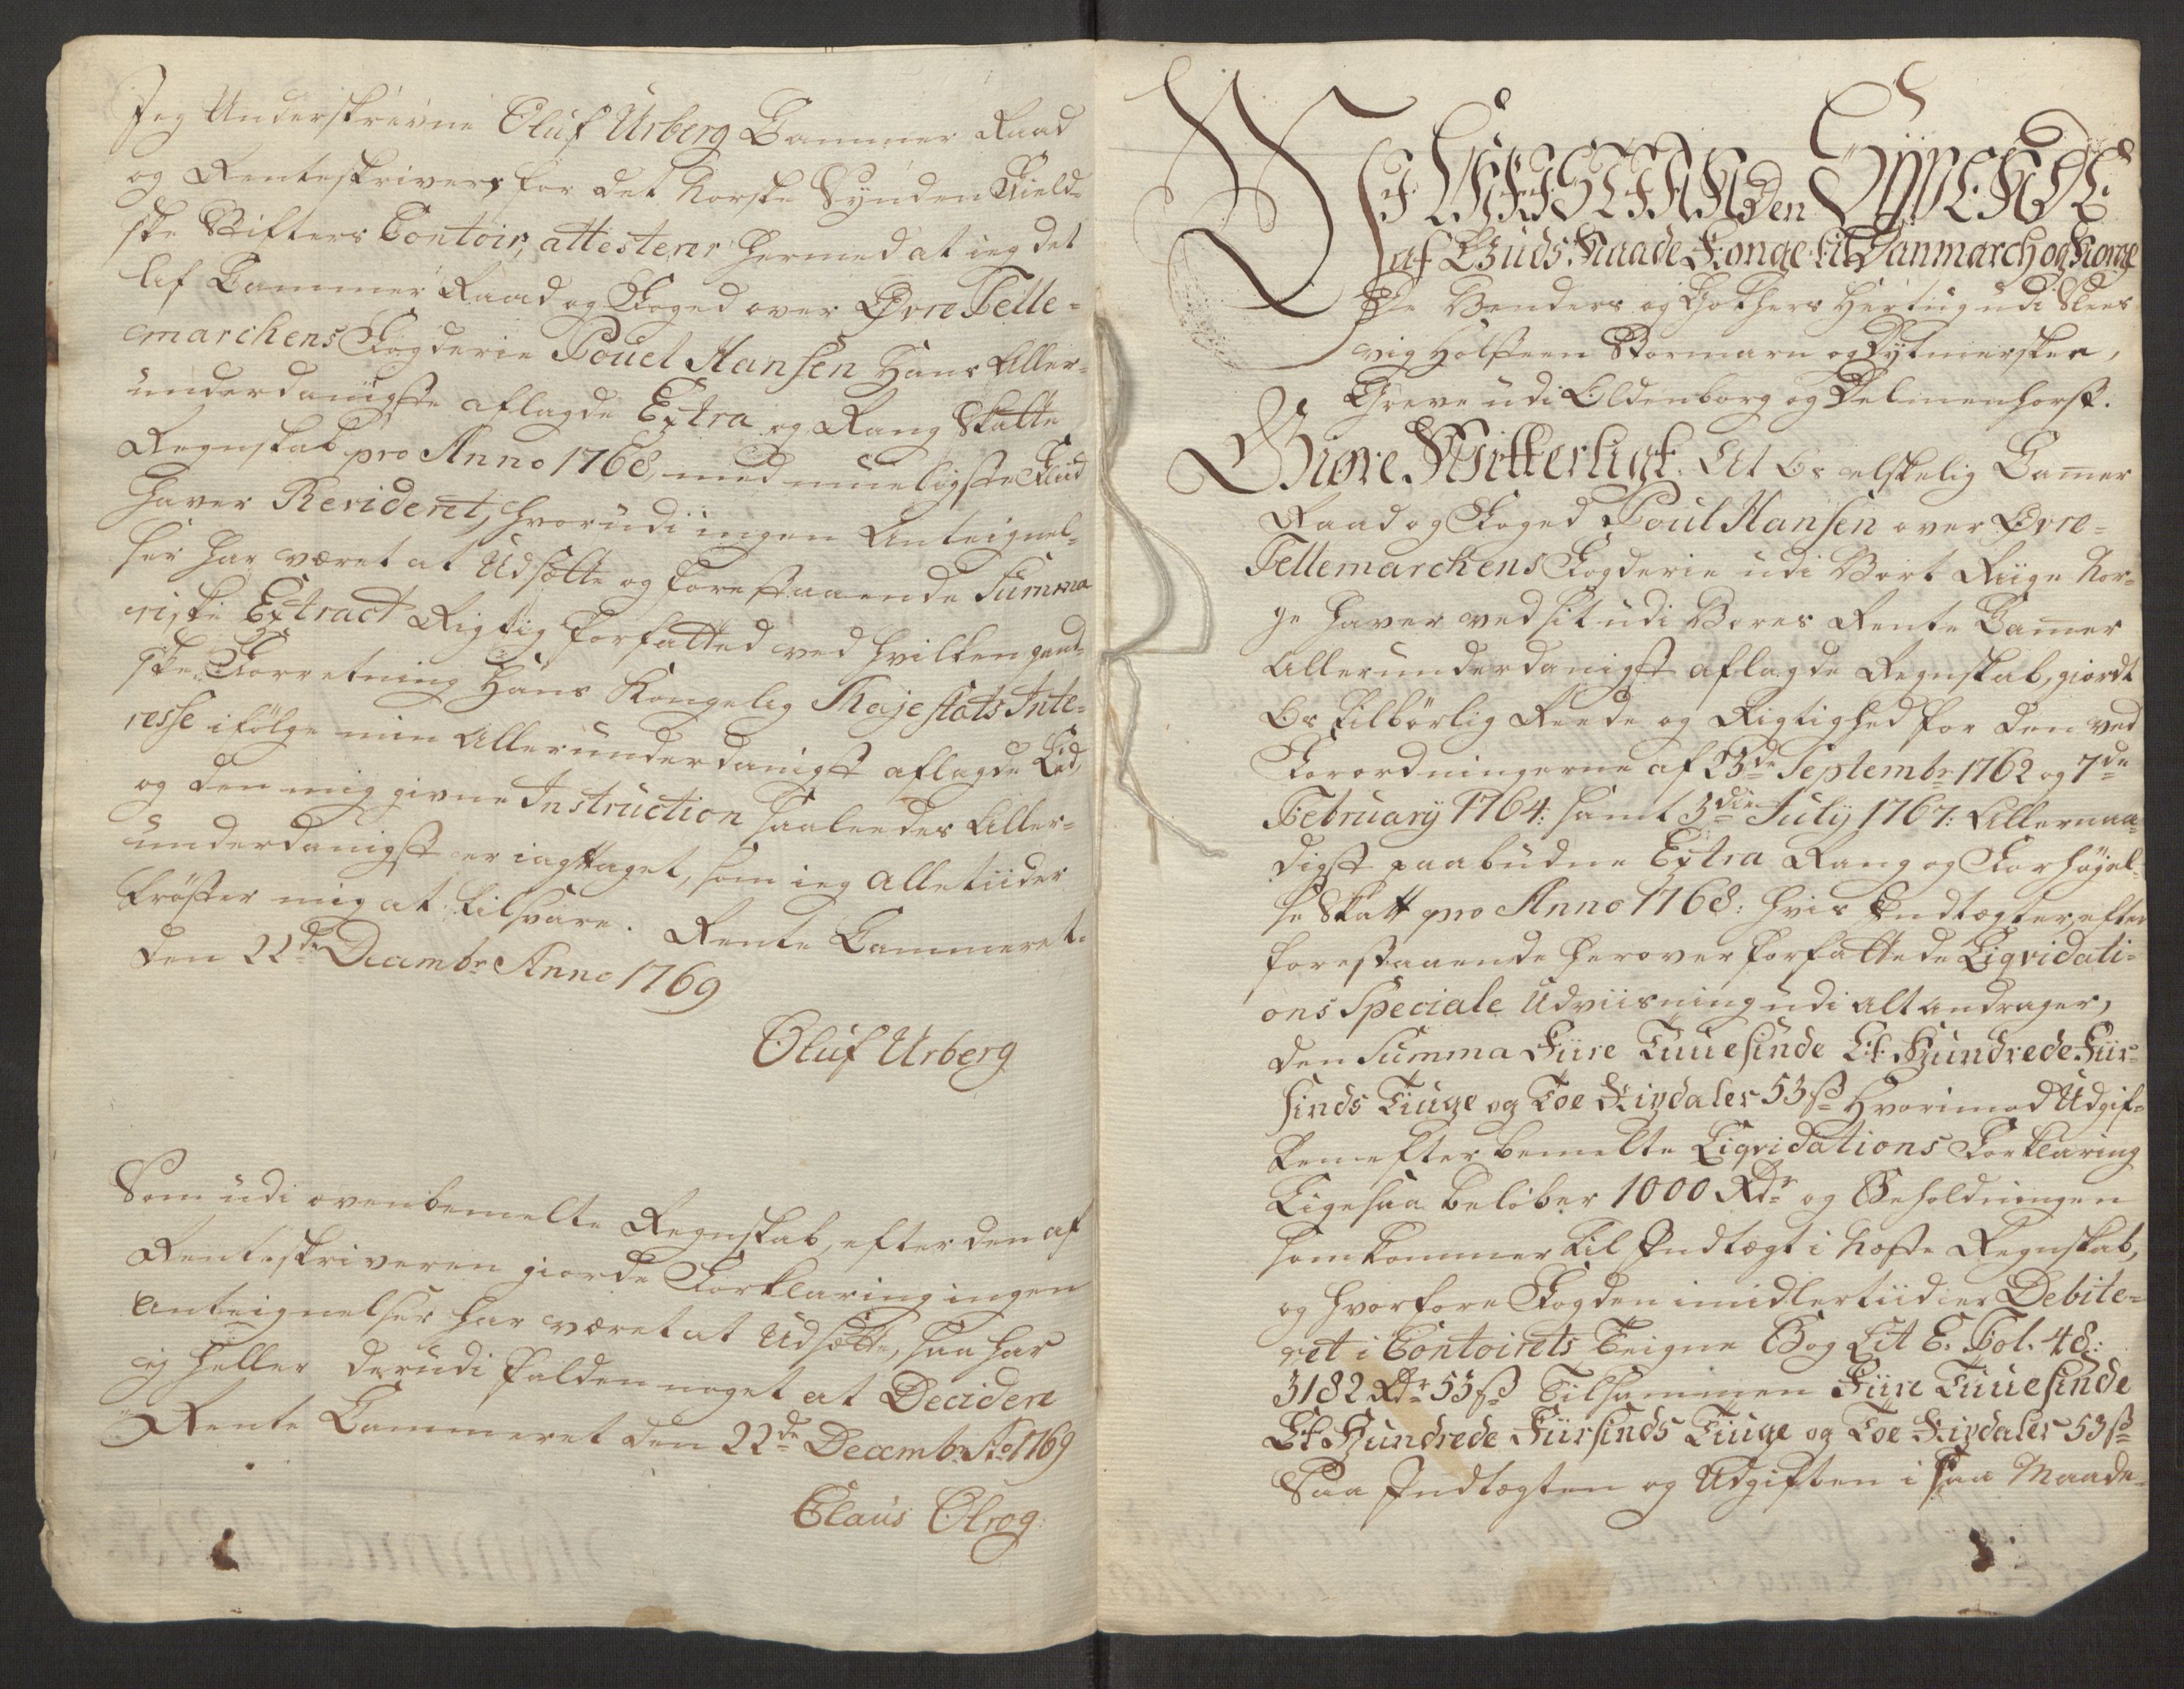 Jeg Underskrevne Oluf Urberg Cammer Raad
og Renteskriver for det Norske Synden Field-
ske Stifters Contoir, attesterer hermed at ieg det
Af Cammer Raad og Foged over Øvre Telle-
marchens Fogderie Pouel Hansen Hans Aller-
underdanigste aflagde Extra og Rang Skatte
Regnskab pro Anno 1768, med mueligste Fliid
haver Revideret, hvorudi ingen Anteignel-
ser har været at Udsætte og forestaaende Summa-
riske Extract Rigtig forfatted ved hvilken gand-
ske Forretning Hans Kongelig Majestæts Inte-
resse ifølge min Allerunderdanigst aflagde Eed,
og den mig givne Instruction saaledes Aller-
underdanigst er iagttaget, som ieg alle tiider
trøster mig at tilsvare. Rente Cammeret.
den 22de Decembr Anno 1769
Oluf Urberg
Som udi ovenbemelte Regnskab, efter den af
Renteskriveren giorde Forklaring ingen
Anteignelser har været at Udsætte, saa har
ej heller derudi falden noget at Decidere
Rente Cammeret den 22de Decembr Ao 1769
Claus Olrog.
Wi CHRISTIAN den SYVENDE
af Guds Naade Konge til Danmarch og Norge
De Venders og Gothers Hertug udi Slees
vig Holsteen Stormarn og Dytmersken,
Greve udi Oldenborg og Delmenhorst.
Giøre Witterligt. At Os elskelig Camer
Raad og Foged Poul Hansen over Øvre-
Tellemarchens Fogderie udi Vort Riige Nor-
ge haver ved sit udi Vores Rente Camer
Allerunderdanigst aflagde Regnskab, giordt
Os tilbørlig Reede og Rigtighed for den ved
Forordningerne af 23de Septembr 1762 og 7de
February 1764: samt 3die July 1767: Allernaa-
digst paabudne Extra Rang og Forhøjel-
se Skatt pro Anno 1768: hvis Indtægter, efter
forestaaende herover forfattede Liqvidati-
ons Speciale Udviisning udi alt andrager,
den Summa Fiire Tuuesinde Et Hundrede Fiir-
sinds Tiuge og Toe Rixdaler 53 ß Hvorimod Udgif-
ten efter bemelte Liqvidations Forklaring
Ligesaa beløber 1000 Rdr og Beholdningen
som kommer til Indtægt i Næste Regnskab,
og hvorfore Fogden imidlertiid er Debite-
ret i Contoirets Teigne Bog Lit E. Fol. 48:
3182 Rdr 53 ß Tilsammen Fiire Tuuesinde
Et Hundrede Fiirsinds Tiuge og Toe Rixdaler 53 ß
Saa Indtægten og Udgiften i saa Maade